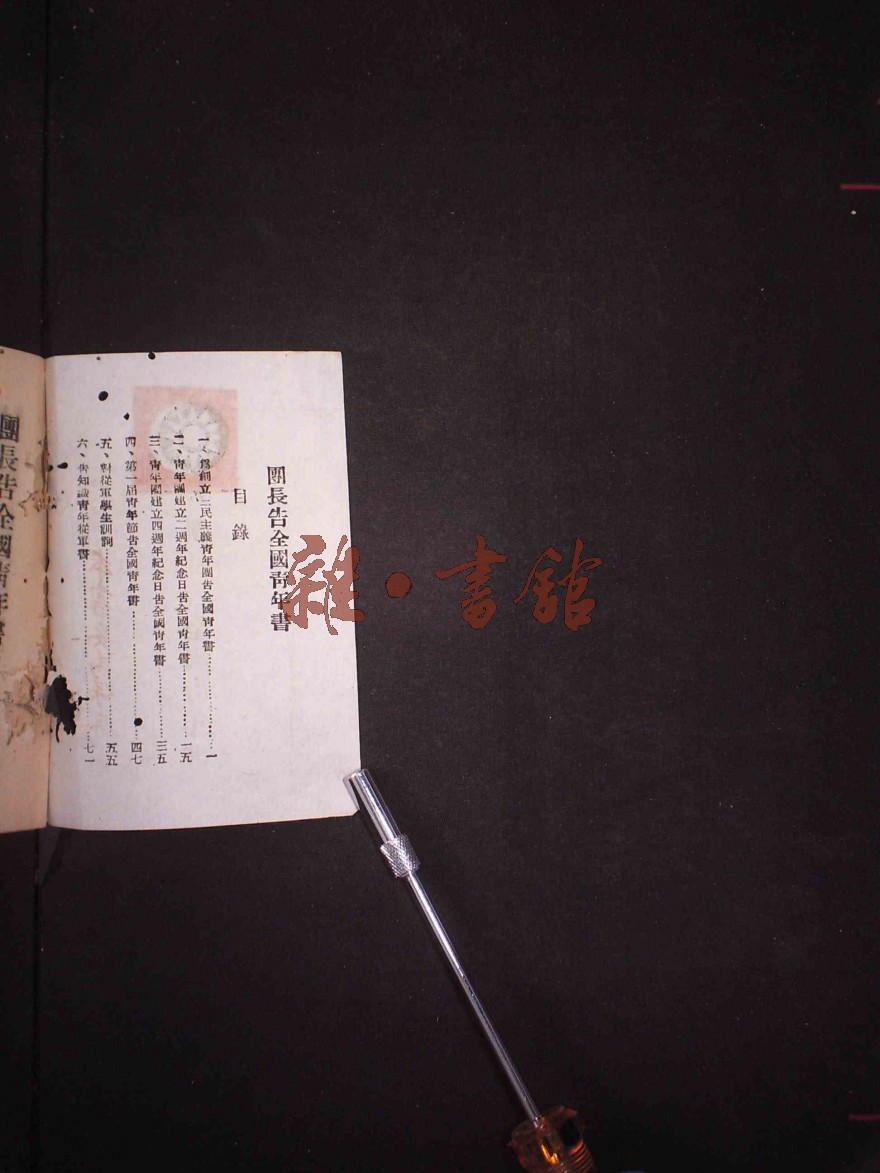 團長告全國青年書
目錄
一、爲創立三民主義青年團告全國青年書…………………一
二、青年團建立二週年紀念日告全國青年書…………一五
三、青年團建立四週年紀念日告全國青年書…………三五
四、第一屆青年節告全國青年書…………………四七
五、對從軍學生訓詞…………………五五
六、告知識青年從軍書…………………七一
團長告全國青年書
雜·書館